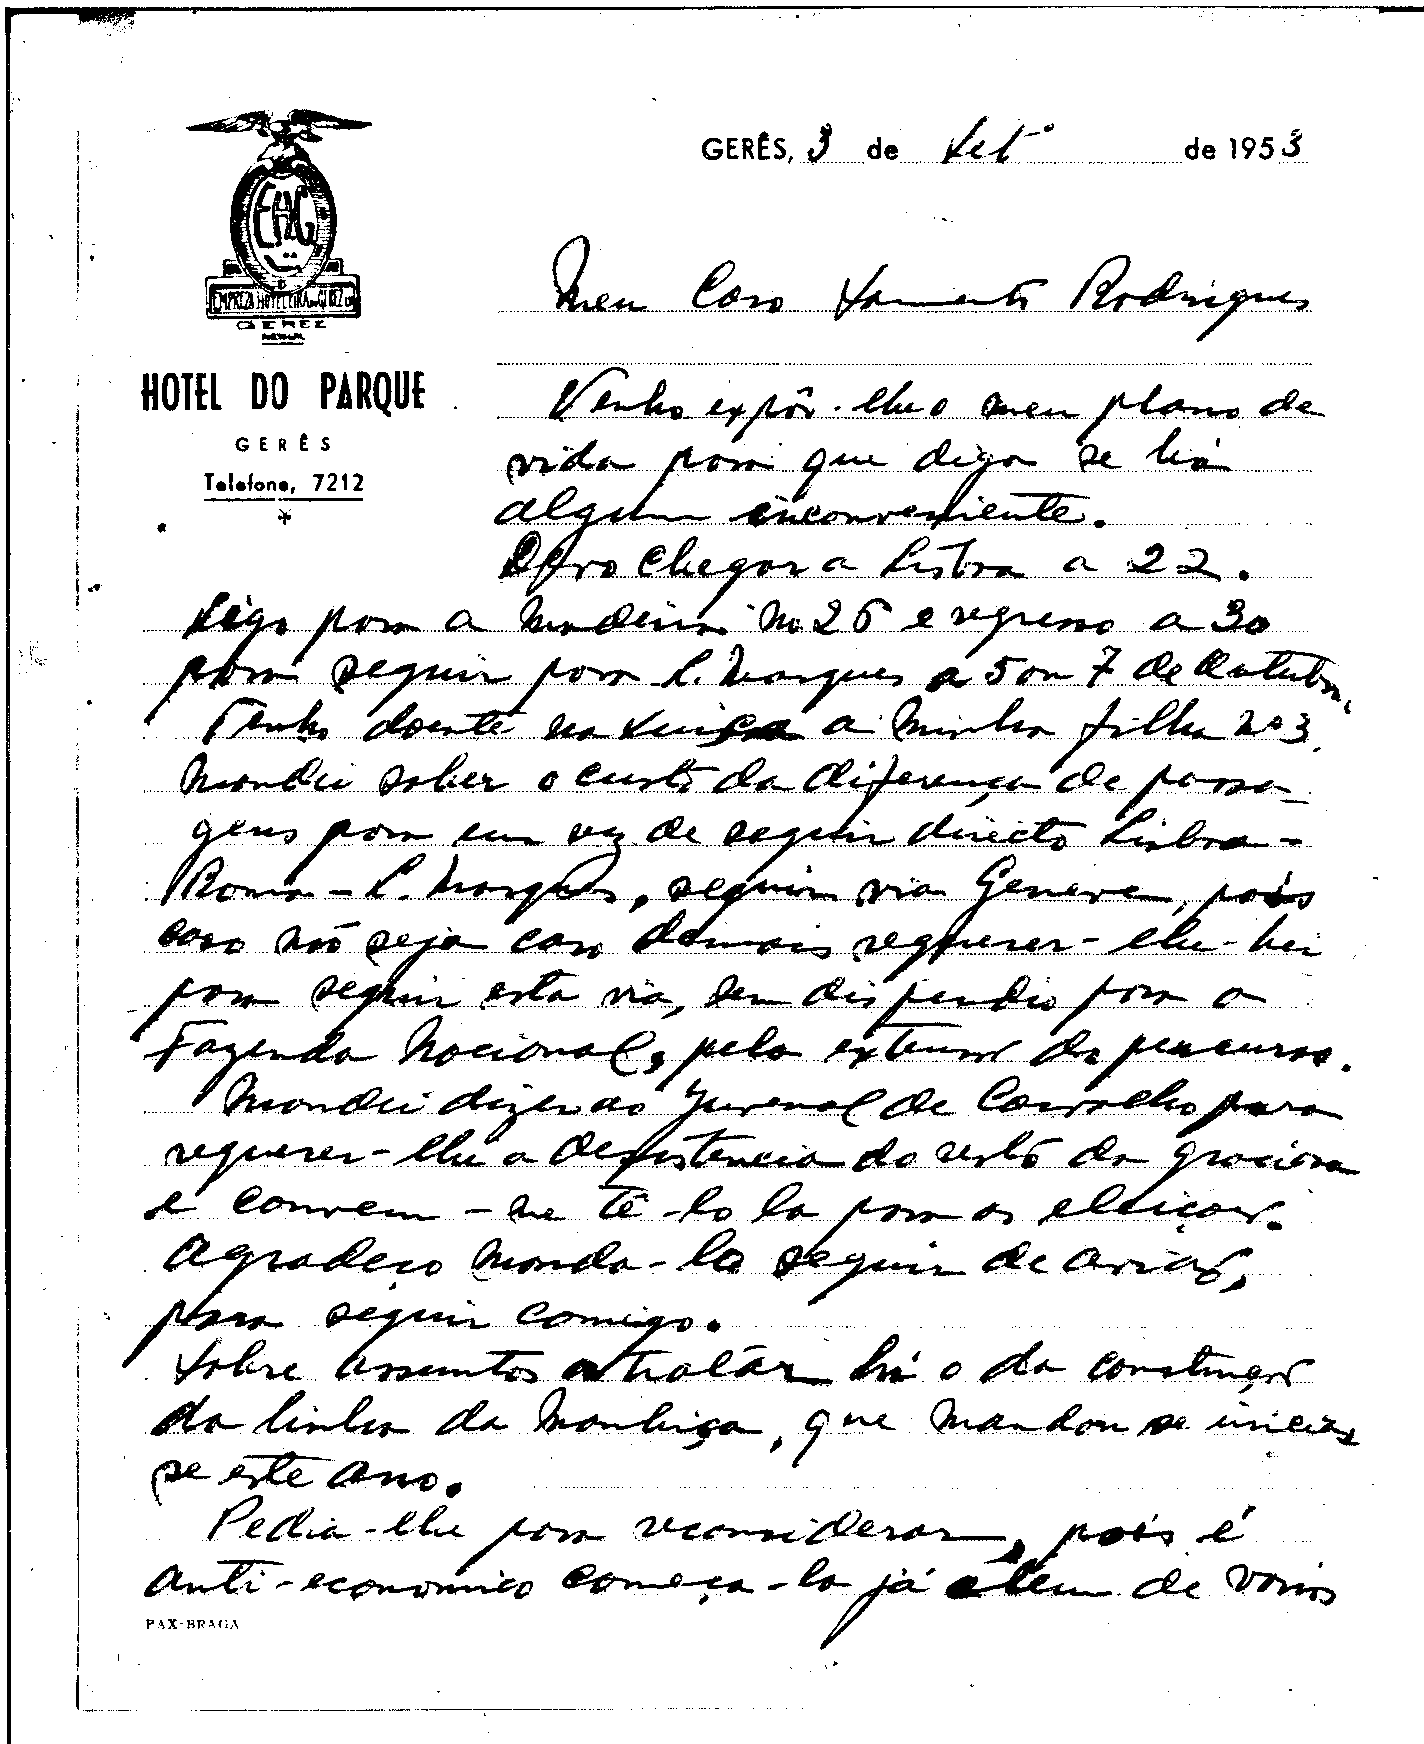 GERÊS, 3 de Setº de 1953
EHG
EMPREZA HOTELEIRA do GEREZ
GEREZ
HOTEL DO PARQUE
GERÊS
Telefone, 7212
Meu Caro Sarmento Rodrigues
Venho expôr-lhe o meu plano de
vida para que diga se há
algum inconveniente.
Devo chegar a Lisboa a 22.
Sigo para a Madeira no 26 e regresso a 30
para seguir para L. Marques a 5 ou 7 de Outubro.
Tenho doente na Suiça a minha filha nº 3.
Mandei saber o custo da diferença de passa-
gens para em vez de seguir directo Lisboa-
Roma - L. Marques, seguir via Geneve, pois
caso não seja caro demais requerer-lhe-hei
para seguir esta via, sem dispendio para a
Fazenda Nacional, pela extensão do percurso.
Mandei dizer ao Juvenal de Carvalho para
requerer-lhe a desistencia do resto da graciosa
e convem-me tê-lo lá para as eleições.
Agradeço manda-lo seguir de avião,
para seguir comigo.
Sobre assuntos a tratar há o da construção
da linha da Manhiça, que mandou se inicias
se este ano.
Pedia-lhe para reconsiderar, pois é
anti-economico começa-la já além de varios
PAX-BRAGA